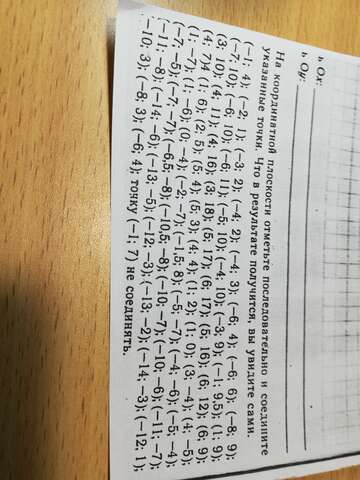 ь Ox:
ь Oy:
На координатной плоскости отметьте последовательно и соедините
указанные точки. Что в результате получится, вы увидите сами.
(−1; 4); (−2; 1); (−3; 2); (−4; 2); (−4; 3); (−6; 4); (−6; 6); (−8; 9);
(−7; 10); (−6; 10); (−6; 11); (−5; 10); (−4; 10); (−3; 9); (−1; 9,5); (1; 9);
(3; 10); (4; 11); (4; 16); (3; 18); (5; 17); (6; 17); (5; 16); (6; 12); (6; 9);
(4; 7)4 (1; 6); (2; 5); (5; 4); (5; 3); (4; 4); (1; 2); (1; 0); (3; −4); (4; −5);
(1; −7); (1; −6); (0; −4); (−2; −7); (−1,5; 8); (−5; −7); (−4; −6); (−5; −4);
(−7; −5); (−7; −7); (−6,5; −8); (−10,5; −8); (−10; −7); (−10; −6); (−11; −7);
(−11; −8); (−14; −6); (−13; −5); (−12; −3); (−13; −2); (−14; −3); (−12; 1);
(−10; 3); (−8; 3); (−6; 4); точку (−1; 7) не соединять.